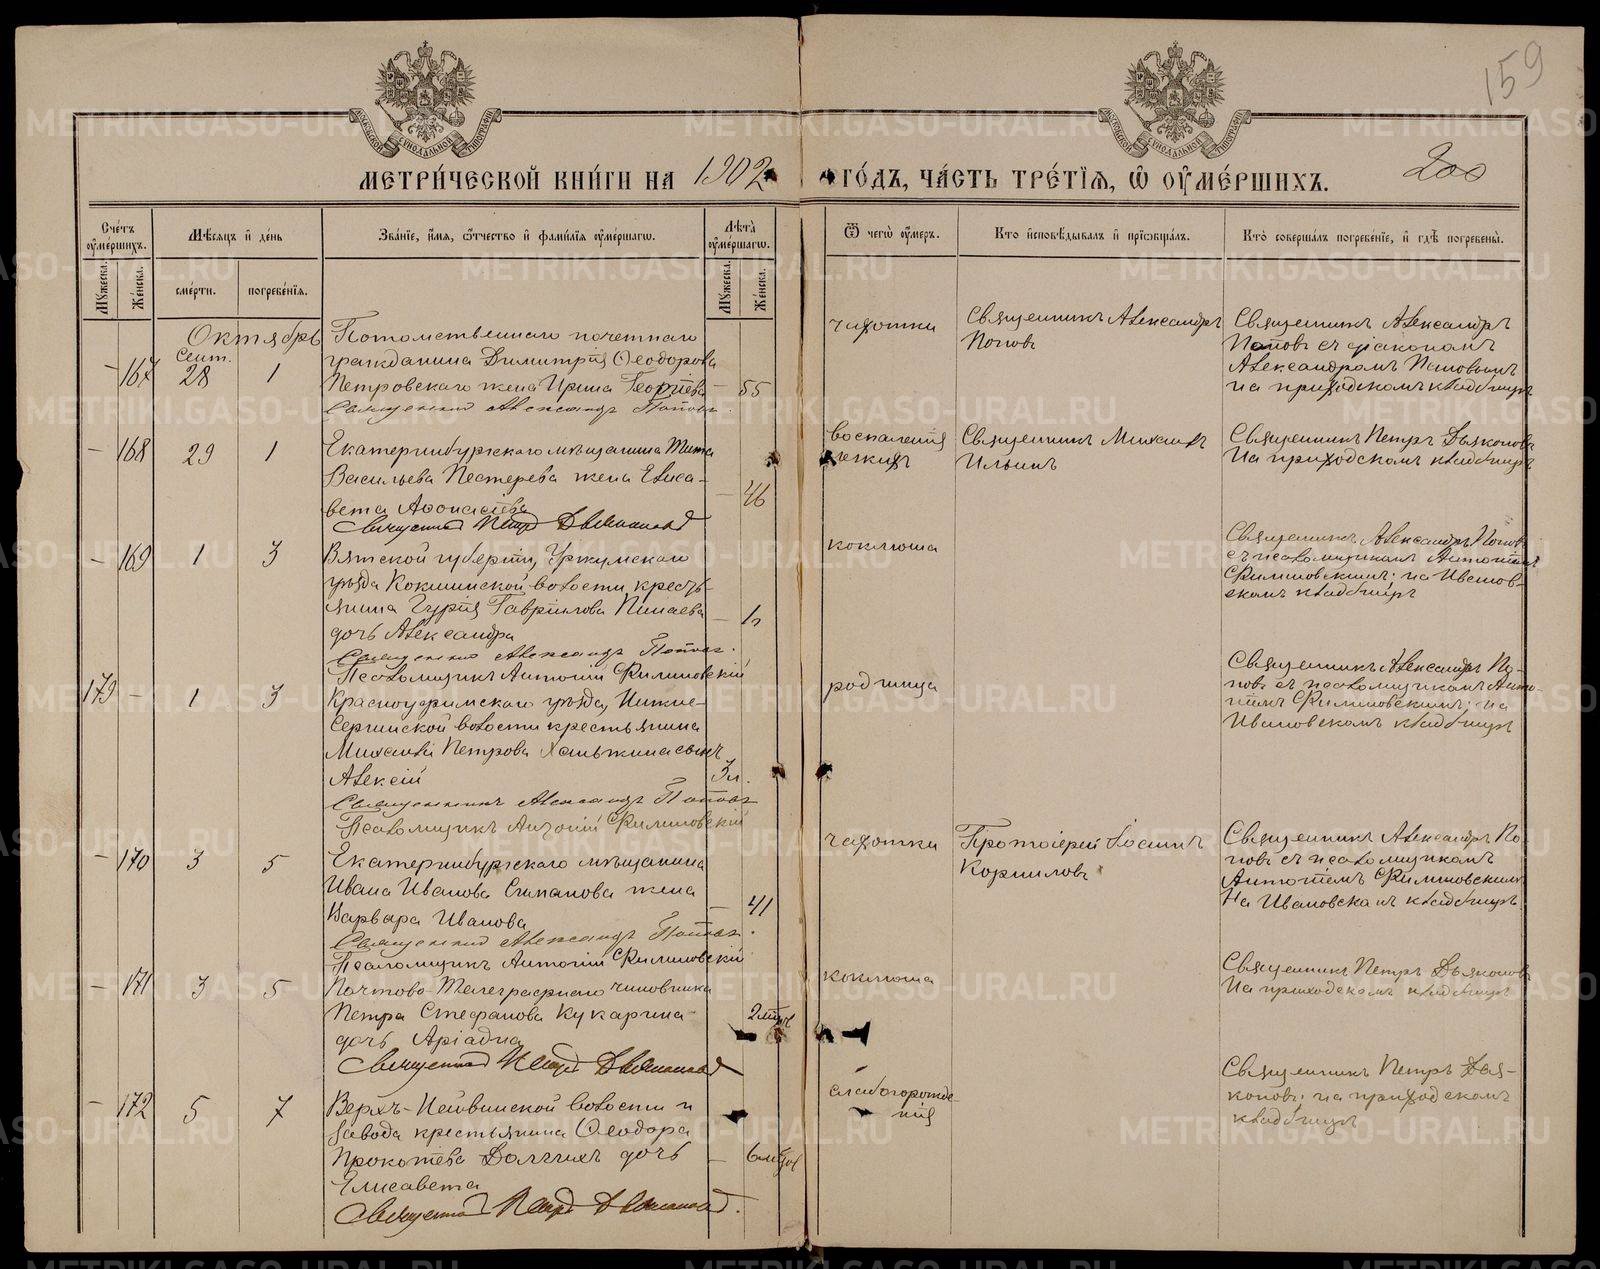 159
МЕТРИ́ЧЕСКОЙ КНИ́ГИ НА 1902 ГО́ДЪ, ЧА́СТЬ ТРЕ́ТІЯ, Ѿ ОУ҆МЕ́РШИХЪ.
200
Сче́тъ оу҆ме́ршихъ.
Мѣ́сяцъ и҆ де́нь
Зва́ніе, и҆́мя, ѻ҆́тчество и҆ фами́лія оу҆ме́ршагѡ.
Лѣ́та оу҆ме́ршагѡ.
Ѿ чегѡ̀ оу҆́меръ.
Кто̀ и҆сповѣ́дывалъ и҆ прїѡбща́лъ.
Кто̀ соверша́лъ погребе́ніе, и҆ гдѣ̀ погребены̀.
Мꙋ́жеска.
Же́нска.
сме́рти.
погребе́нія.
Мꙋ́жеска.
Же́нска.
Октябрь
– 167
Сент.
28
1
Потомственнаго почетнаго
гражданина Димитрія Ѳеодорова
Петровскаго жена Ирина Георгіева
– 55
Священникъ Александръ Поповъ.
чахотки
Священникъ Александръ
Поповъ
Священникъ Александръ
Поповъ съ діакономъ
Александромъ Поповымъ
на приходскомъ кладбищѣ
– 168
29
1
Екатеринбургскаго мѣщанина Тита
Васильева Пестерева жена Елиса-
вета Аѳонасіева
– 46
Священникъ Петръ Дьяконовъ
воспаленія
легкихъ
Священникъ Михаилъ
Ильинъ
Священникъ Петръ Дьяконовъ
На приходскомъ кладбищѣ
– 169
1
3
Вятской губерніи, Уржумскаго
уѣзда Кокшинской волости, кресть-
янина Гурія Гавріилова Пинаева
дочь Александра
– 1г
Священникъ Александръ Поповъ.
Псаломщикъ Антоній Филиповскій
коклюша
Священникъ Александръ Поповъ
съ псаломщикомъ Антоніемъ
Филиповскимъ; на Иванов-
скомъ кладбищѣ
179 –
1
3
Красноуфимскаго уѣзда, Нижне-
Сергинской волости крестьянина
Михаила Петрова Ханжина сынъ
Алексій
3л.
Священникъ Александръ Поповъ
Псаломщикъ Антоній Филиповскій
родимца
Священникъ Александръ По-
повъ съ псаломщикомъ Анто-
ніемъ Филиповскимъ; на
Ивановскомъ кладбищѣ
– 170
3
5
Екатеринбургскаго мѣщанина
Ивана Иванова Степанова жена
Варвара Иванова
– 41
Священникъ Александръ Поповъ.
Псаломщикъ Антоній Филиповскій
чахотки
Протоіерей Іоаннъ
Корниловъ
Священникъ Александръ По-
повъ съ псаломщикомъ
Антоніемъ Филиповскимъ
На Ивановскомъ кладбищѣ.
– 171
3
5
Почтово-Телеграфнаго чиновника
Петра Стефанова Кукарина
дочь Аріадна
2 мѣс
Священникъ Петръ Дьяконовъ
коклюша
Священникъ Петръ Дьяконовъ
На приходскомъ кладбищѣ
– 172
5
7
Верхъ-Нейвинской волости и
завода крестьянина Ѳеодора
Прокопіева Долгихъ дочь
Елисавета
– 6 мѣсяц
Священникъ Петръ Дьяконовъ.
слаборожде-
нія
Священникъ Петръ Дья-
коновъ; на приходскомъ
кладбищѣ
METRIKI.GASO-URAL.RU